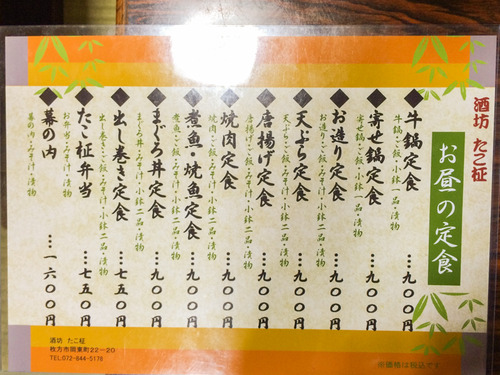 酒坊 たこ柾
お昼の定食
◆牛鍋定食 …九〇〇円
牛鍋・ご飯・小鉢一品・漬物
◆寄せ鍋定食 …九〇〇円
寄せ鍋・ご飯・小鉢一品・漬物
◆お造り定食 …九〇〇円
お造り・ご飯・みそ汁・小鉢二品・漬物
◆天ぷら定食 …九〇〇円
天ぷら・ご飯・みそ汁・小鉢二品・漬物
◆唐揚げ定食 …九〇〇円
唐揚げ・ご飯・みそ汁・小鉢二品・漬物
◆焼肉定食 …九〇〇円
焼肉・ご飯・みそ汁・小鉢二品・漬物
◆煮魚・焼魚定食 …九〇〇円
煮魚・ご飯・みそ汁・小鉢二品・漬物
◆まぐろ丼定食 …九〇〇円
まぐろ丼・みそ汁・小鉢二品・漬物
◆出し巻き定食 …七五〇円
出し巻き・ご飯・みそ汁・小鉢二品・漬物
◆たこ柾弁当 …七五〇円
お弁当・みそ汁・漬物
◆幕の内 …一六〇〇円
幕の内・みそ汁・漬物
酒坊 たこ柾
枚方市岡東町22-20
TEL.072-844-5178
※価格は税込です